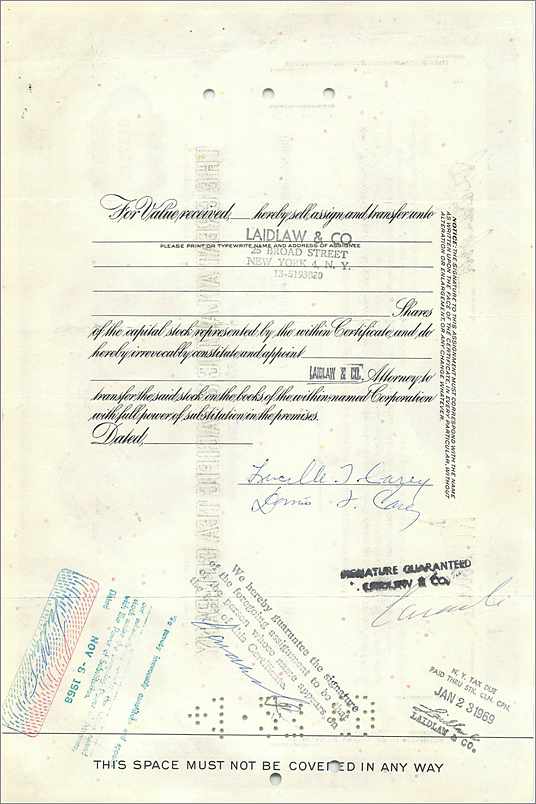 For Value received, hereby sell, assign, and transfer unto
LAIDLAW & CO.
PLEASE PRINT OR TYPEWRITE NAME AND ADDRESS OF ASSIGNEE
25 BROAD STREET
NEW YORK 4, N. Y.
13-5193820
Shares
of the capital stock represented by the within Certificate, and do
hereby irrevocably constitute and appoint
LAIDLAW & CO. Attorney to
transfer the said stock on the books of the within-named Corporation
with full power of substitution in the premises.
Dated,
NOTICE: THE SIGNATURE TO THIS ASSIGNMENT MUST CORRESPOND WITH THE NAME
AS WRITTEN UPON THE FACE OF THE CERTIFICATE, IN EVERY PARTICULAR, WITHOUT
ALTERATION OR ENLARGEMENT, OR ANY CHANGE WHATEVER.
Lucille T. Carey
Carey
SIGNATURE GUARANTEED
LAIDLAW & CO.
We hereby guarantee the signature
of the foregoing assignment to be that of
the person whose name appears on
of this Certificate
NOV -6 1968
N. Y. TAX DUE
PAID THRU STK. CLN. CPN.
JAN 23 1969
LAIDLAW & CO.
THIS SPACE MUST NOT BE COVERED IN ANY WAY